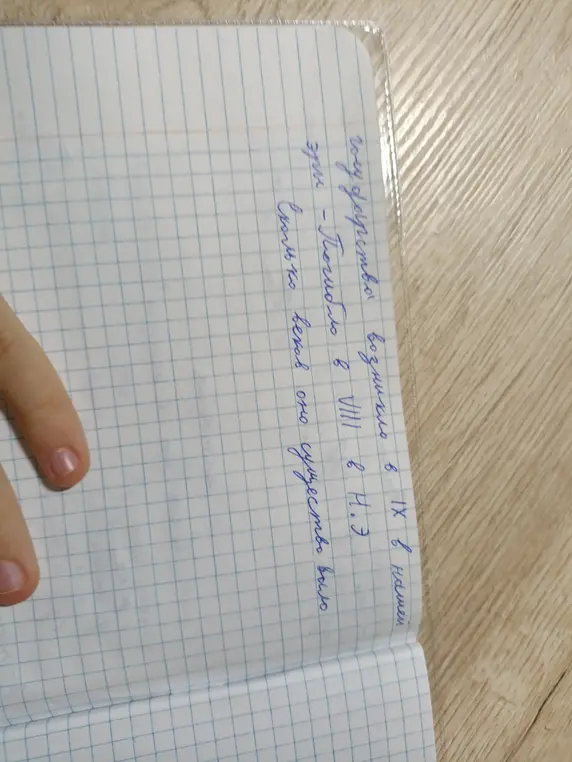 государство возникло в IX в нашей
эры - Погибло в VIII в Н.Э
Сколько веков оно существовало